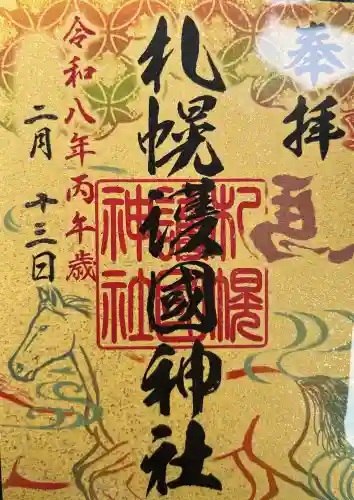 奉拝
札幌護國神社
令和八年丙午歳
二月 十三日
札幌護國神社